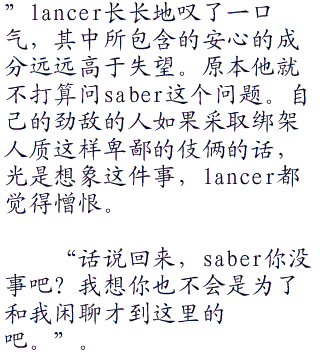 ”lancer长长地叹了一口
气，其中所包含的安心的成
分远远高于失望。原本他就
不打算问saber这个问题。自
己的劲敌的人如果采取绑架
人质这样卑鄙的伎俩的话，
光是想象这件事，lancer都
觉得憎恨。
“话说回来，saber你没
事吧？我想你也不会是为了
和我闲聊才到这里的
吧。”。